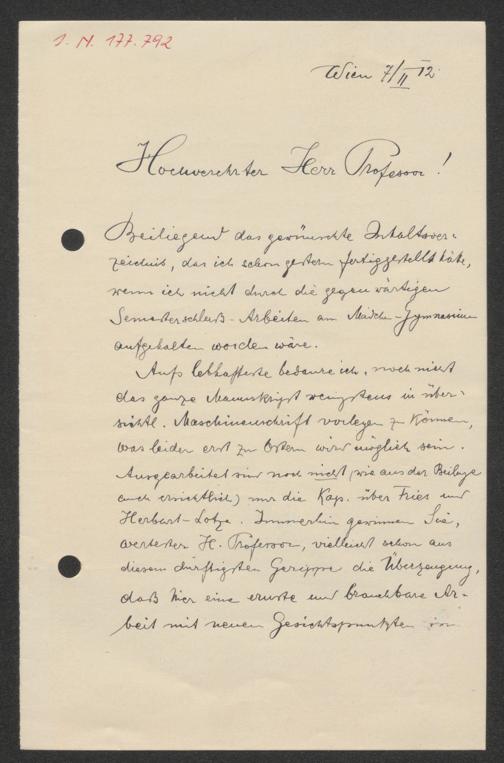 J. N. 177.792
Wien 7/II 12.
Hochverehrter Herr Professor!
Beiliegend das gewünschte Inhaltsver-
zeichnis, das ich schon gestern fertiggestellt hätte,
wenn ich nicht durch die gegenwärtigen
Semesterschluß-Arbeiten am Mädchen-Gymnasium
aufgehalten worden wäre.
Aufs lebhafteste bedaure ich, noch nicht
das ganze Manuskript wenigstens in über-
sichtl. Maschinenschrift vorlegen zu können,
was leider erst zu Ostern wird möglich sein.
Ausgearbeitet sind noch nicht (wie aus der Beilage
auch ersichtlich) nur die Kap. über Fries und
Herbart-Lotze. Immerhin gewinnen Sie,
verehrter H. Professor, vielleicht schon aus
diesem dürftigsten Gerippe die Überzeugung,
daß hier eine ernste und brauchbare Ar-
beit mit neuen Gesichtspunkten